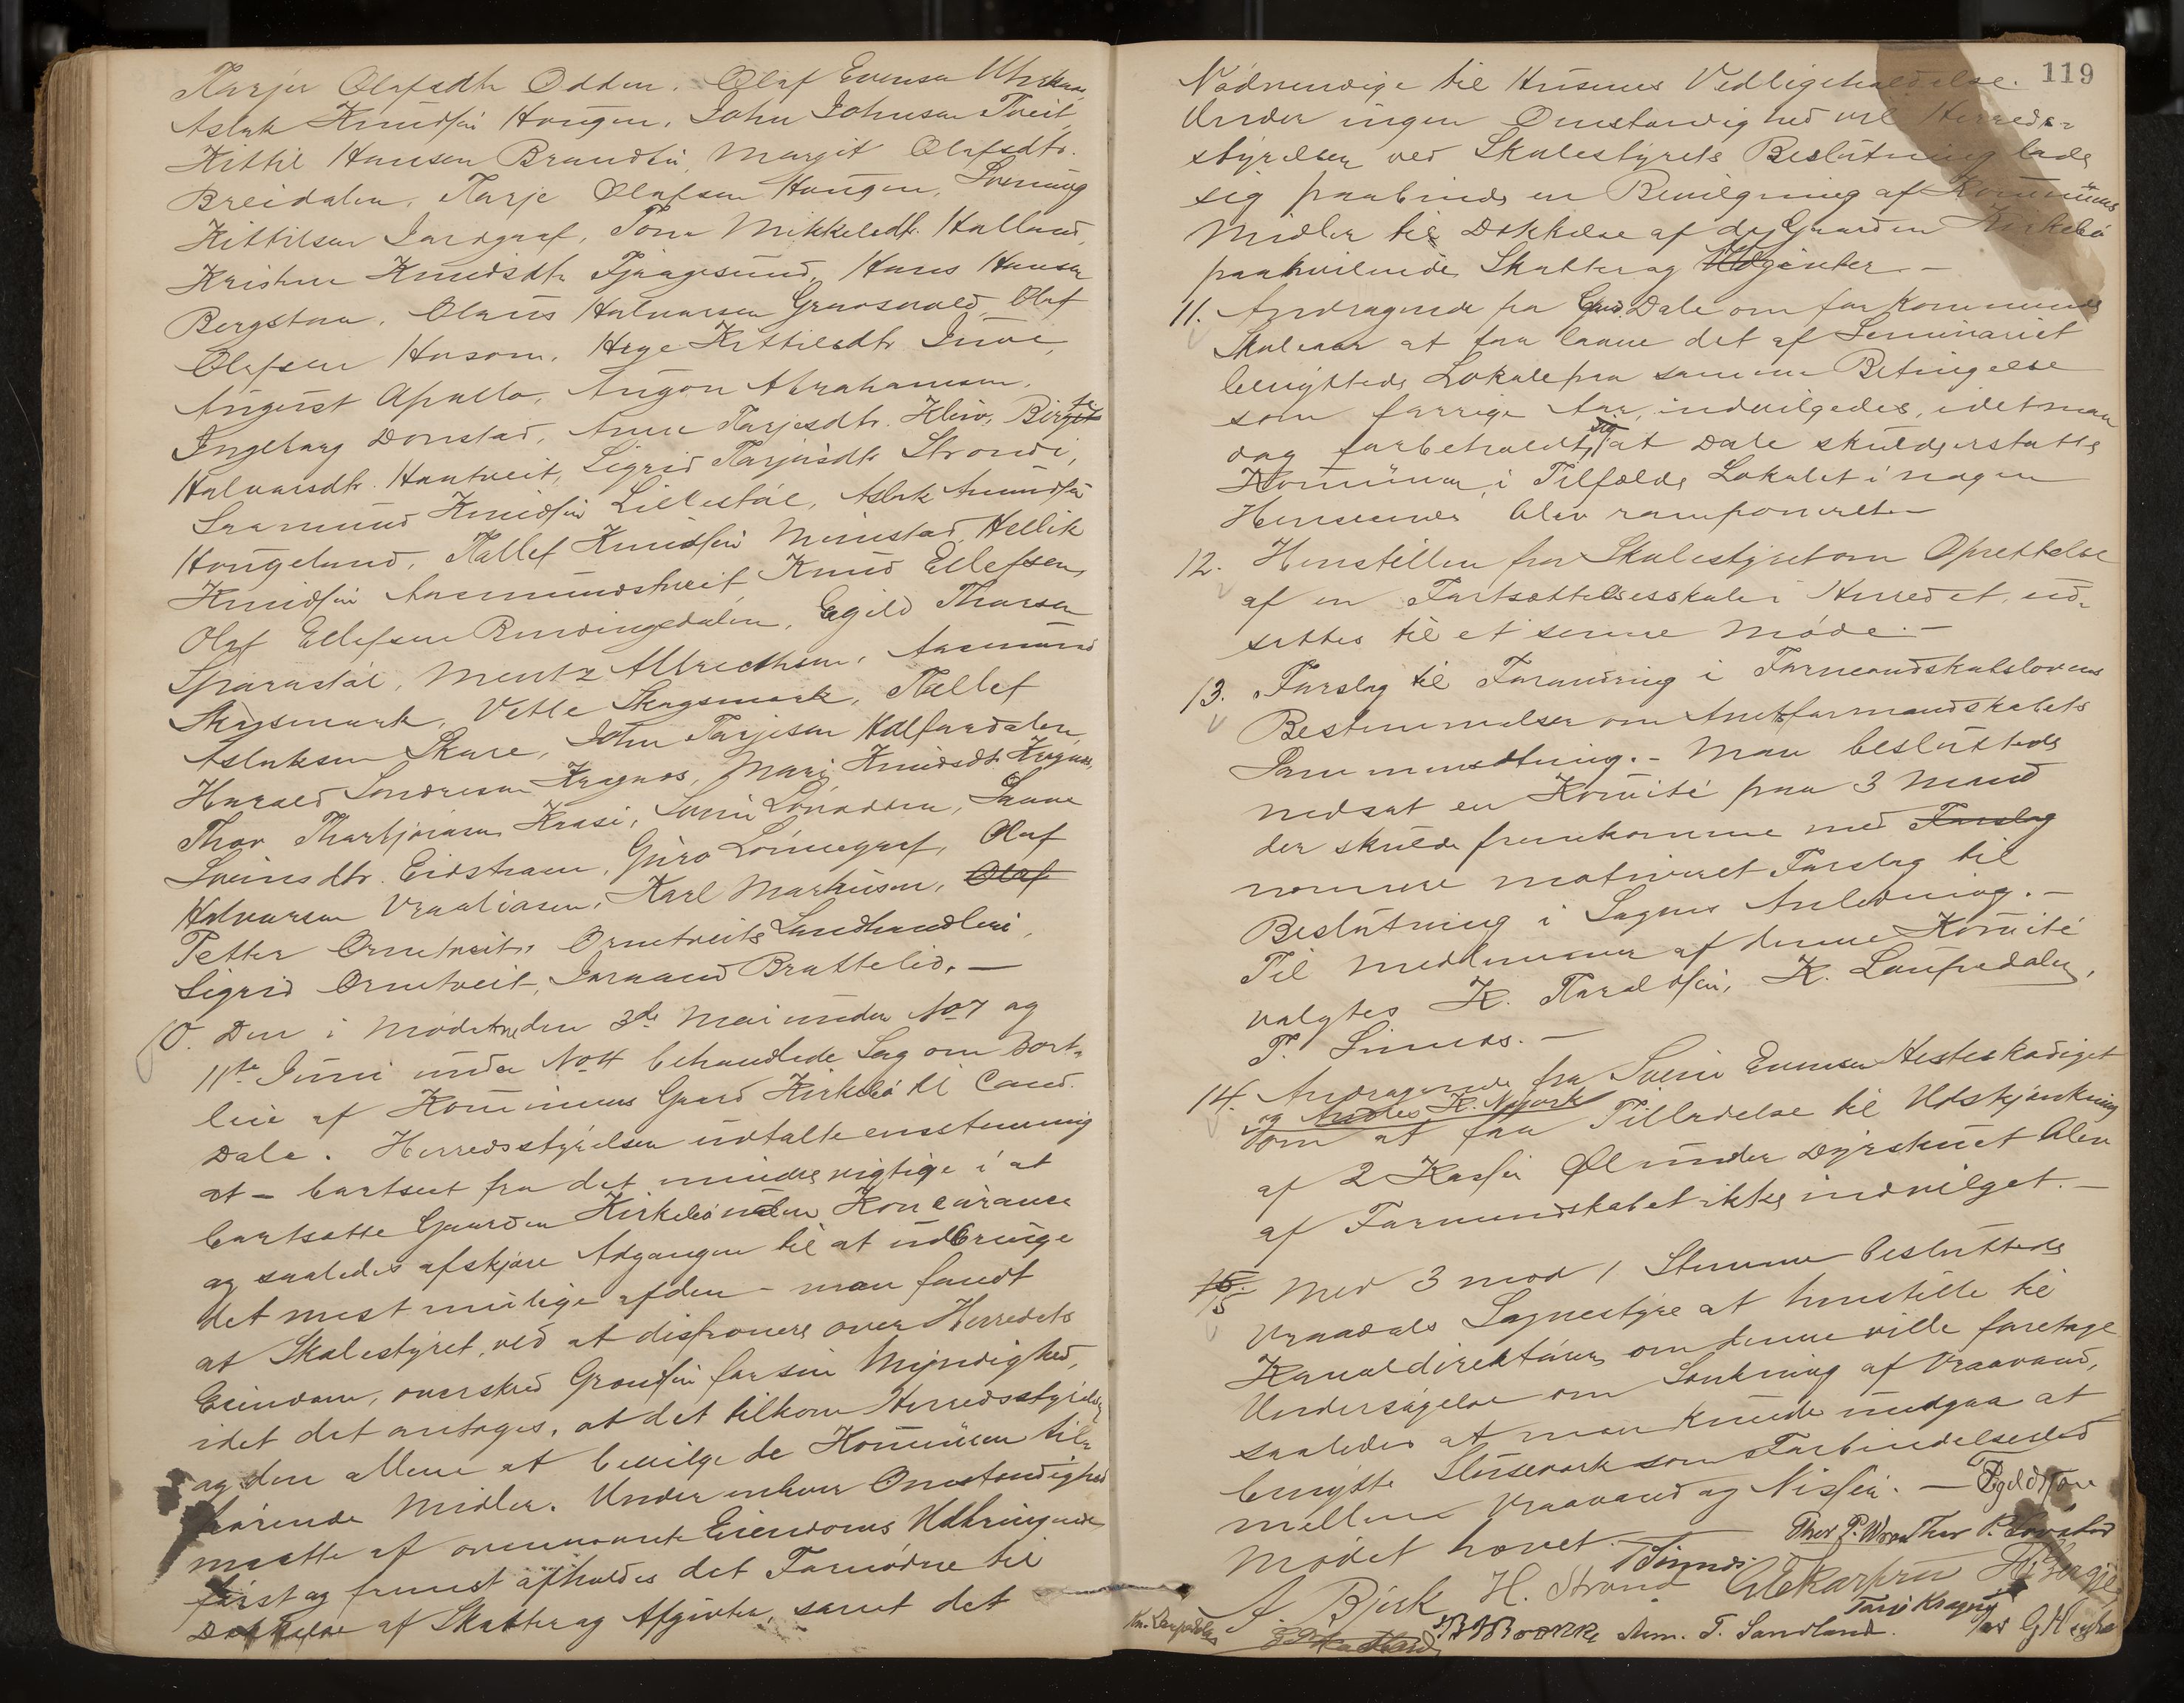 Tarjer Olafsdtr Odden. Olaf Evensen
Aslak Knudsen Haugen. John Johnsen Tveit,
Kittil Hansen Brandsu, Margit Olafsdtr.
Breidalen, Tarje Olafsen Haugen, Sveinung
Kittilsen Jardgraf, Tone Mikkelsdtr. Halland,
Kristine Knudsdtr Fjaagesund, Hans Hansen
Bergstau, Olaus Halvorsen Grausvold, Olaf
Olafsen Husom. Hege Kittilsdtr
August Apaello, August Abrahamsen.
Ingeborg Donstad, Anne Tarjesdtr. Kleiv, Birgit
Halvorsdtr. Hauttveit, Sigrid Tarjeisdtr Strondi,
Saamund Knudsen Lillestøl, Aslak Amundsen
Haugelund, Tallef Knudsen Mænstad, Hellik
Knudsen Aasmundstveit, Knud Ellefsen,
Olaf Ellefsen Rindingsdalen. Egild Thorsen
Sparastøl, Mentz Albrecthsen, Aasmund
Skogsmark, Vetle Skogsmark, Tallef
Aslaksen Skare, John Tarjesen Halfardalen,
Harald Sondresen Kragnes, Mari Knudsdtr Kragnes,
Thor Thorbjørnsen Kaasi, Svein Sønadden, Signe
Sveinsdtr. Eidstram, Guro Lønnegraf, Olaf
Halvorsen Vraaliosen, Karl Markussen, Olaf
Petter Ormtveit. Ormtveits Landhandleri,
Sigrid Ormtveit, Jaraand Brattelid. —
10. Den i Mødet den 3de Mai under No 7 og
11te Juni under No 4 behandlede Sag om Bort-
leie af Kommunens Gaard Kirkebø til Cand.
Dale. Herredsstyrelsen udtalte enstemmig
at – bortseet fra det mindre rigtige i at
bortsætte Gaarden Kirkebø uden Koncurance
og saaledes afskjære Adgangen til at udbringe
det mest mulige af den – man fandt
at Skolestyret, ved at disponere over Herredets
Eiendom, overskred Grænsen for sin Myndighed,
idet det antoges, at det tilkom Herredsstyrelsen
og den allene at bevilge de Kommunen til-
hørende Midler. Under enhver Omstændighed
maatte af ovennævnte Eiendoms Udbringende
først og fremst afholdes det Fornødne til
Dækkelse af Skatter og Afgivter, samt det
119
Nødvendige til Husenes Vedligeholdelse.
Under ingen Omstændighed vil Herreds-
styrelsen ved Skolestyrets Beslutning lade
sig paabinde en Bevilgning af Kommunens
Midler til Dækkelse af de Gaarden Kirkebø
paahvilende Skatter og Udgivter –
11. Andragende fra Cand. Dale om for kommende
Skoleaar at faa laane det af Seminariet
benyttede Lokale paa samme Betingelse
som forrige Aar, indvilgedes, idet man
dog forbeholdt sig, at Dale skulde erstatte
Kommunen, i Tilfælde Lokalet i nogen
Henseende blev ramponeret –
12. Henstillen fra Skolestyret om Oprettelse
af en Fortsættelsesskole i Herredet, ud-
sættes til et senere Møde. –
13. Forslag til Forandring i Formandskabslovens
Bestemmelser om Amtsformandskabets
Sammensætning. – Man besluttede
nedsat en Komité paa 3 Mand
der skulde fremkomme med Forslag
nærmere motiveret Forslag til
Beslutning i Sagens Anledning. –
Til Medlemmer af denne Komité
valgtes K. Taraldsen, K. Laupedalen,
T. Sinnes. –
14. Andragende fra Svein Evensen Hesteskodiget
og Anders K. Nymark
om at faa Tilladelse til Udskjænkning
af 2 Kasser Øl under Dyrskuet blev
af Formandskabet ikke indvilget. –
15 Med 3 mod 1 Stemme besluttede
Vraadals Sognestyre at henstille til
Kanaldirektøren om denne ville foretage
Undersøgelse om Sænkning af Vraavand,
saaledes at man kunde undgaa at
benytte Slusevark som Forbindelsesled
mellem Vraavand og Nisser. –
Mødet hævet. TSinnes. Thor P. Wraa Thor P.
A. Bjørk H. Strand
Tarje Kragnes
Kn. Laupedalen Aum. T. Sandland.